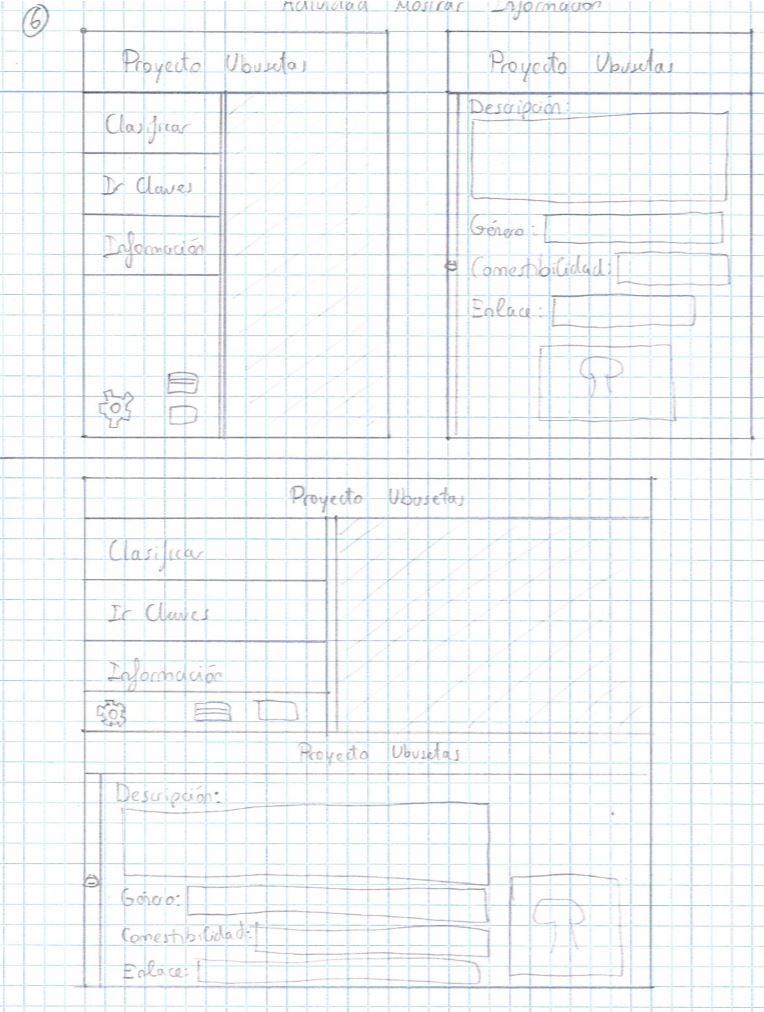 6
Actividad Mostrar Información
Proyecto Ubusetas
Clasificar
Ir Claves
Información
Proyecto Ubusetas
Descripción:
Género:
Comestibilidad:
Enlace:
Proyecto Ubusetas
Clasificar
Ir Claves
Información
Proyecto Ubusetas
Descripción:
Género:
Comestibilidad:
Enlace: